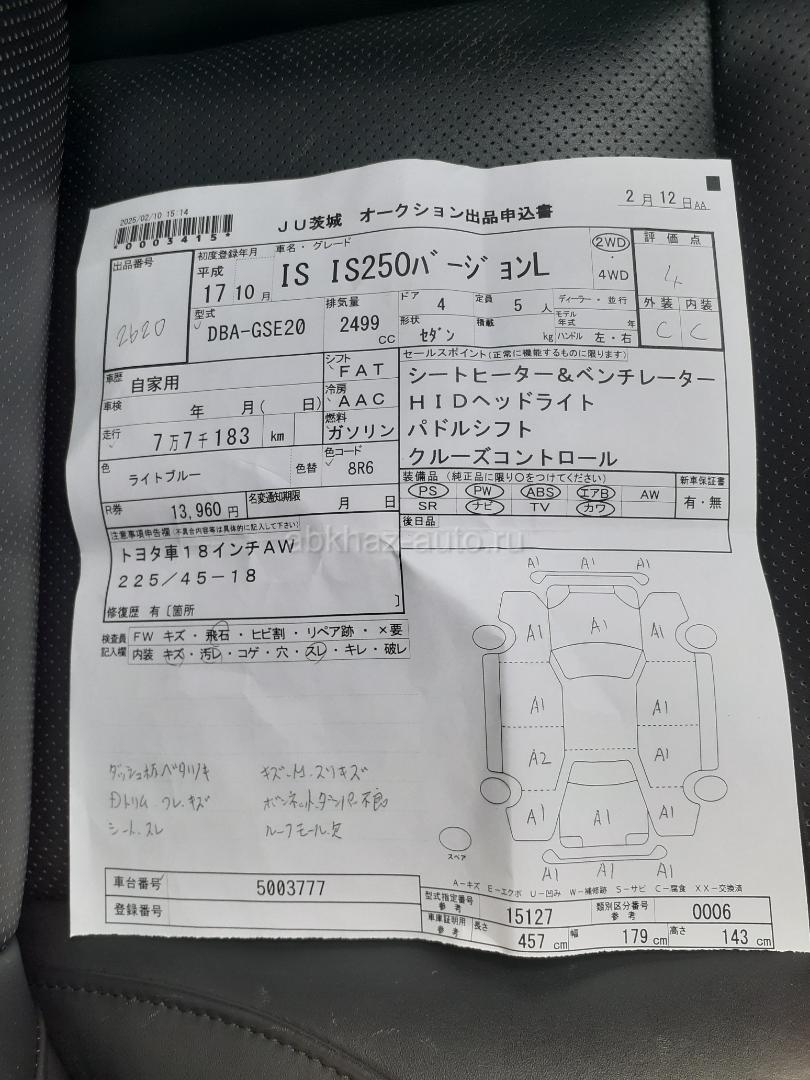 2025/02/10 15:14
*0003415*
JU茨城 オークション出品申込書
2月12日AA
出品番号
2620
初度登録年月
平成
17 10月
車名・グレード
IS IS250バージョンL
2WD
・
4WD
評価点
4
外装 内装
C C
型式
DBA-GSE20
排気量
2499 CC
ドア 4 定員 5 人
ディーラー・並行
形状 セダン 積載 kg
モデル年式 年
ハンドル 左・右
車歴 自家用
シフト FAT
車検 年 月( 日)
冷房 AAC
走行 7万7千183 km
燃料 ガソリン
色 ライトブルー 色替
色コード 8R6
R券 13,960円
名変通知期限 月 日
セールスポイント(正常に機能するものに限ります)
シートヒーター&ベンチレーター
HIDヘッドライト
パドルシフト
クルーズコントロール
装備品(純正品に限り○をつけてください)
PS PW ABS エアB AW
SR ナビ TV カワ
新車保証書
有・無
後日品
注意事項申告欄(不具合内容等は具体的に記入して下さい)
トヨタ車18インチAW
225/45-18
修復歴 有〔箇所 〕
検査員記入欄
FW キズ・飛石・ヒビ割・リペア跡・×要
内装 キズ・汚レ・コゲ・穴・スレ・キレ・破レ
abkhaz-auto.ru
A1 A1 A1
A1 A1 A1
A1 A1
A2 A1
A1 A1 A1
A1 A1 A1
スペア
シート.スレ
ボンネットダンパー不良
ルーフモール欠
A-キズ E-エクボ U-凹み W-補修跡 S-サビ C-腐食 XX-交換済
車台番号 5003777
登録番号
型式指定番号 参考 15127
類別区分番号 参考 0006
車庫証明用 参考
長さ 457 cm 幅 179 cm 高さ 143 cm